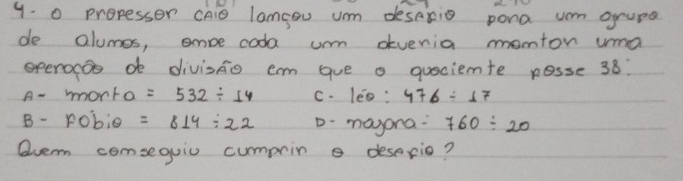 4- o professor CAIO lançou um desafio para um grupo
de alunos, onde cada um deveria montar uma
operação de divisão em que o quociente fosse 38:
A- marta = 532 ÷ 14 C- léo: 476 ÷ 17
B- Fábio = 814 ÷ 22 D- mayara- 760 ÷ 20
Quem conseguiu cumprir o desafio?